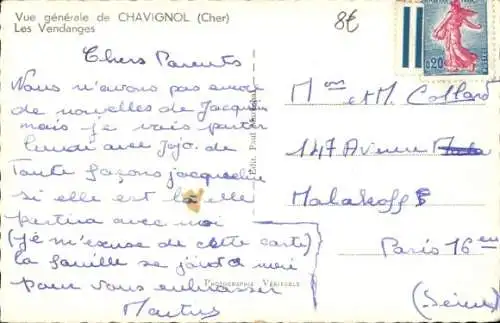 Vue générale de CHAVIGNOL (Cher)
Les Vendanges
8€
0,20
Chers Parents
Nous n'avons pas encore
de nouvelles de Jacqueline
mais je vais partir
lundi avec Jojo. de
toute façons jacqueline
si elle est là elle
partira avec moi
(je m'excuse de cette carte)
la famille se joint a moi
pour vous embrasser
PHOTOGRAPHIE VÉRITABLE
Edit. Paul
et M. Collard
147 Avenue
Malakoff
Paris 16 em
(Seine)